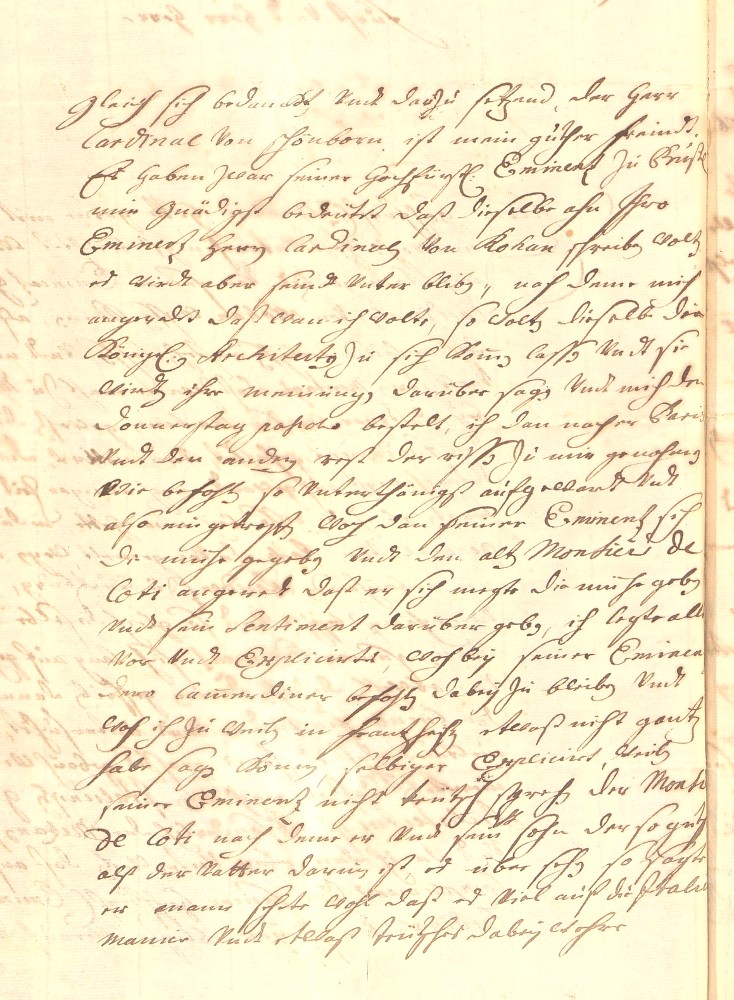 gleich sich bedanckt undt darzu setzend, der Herr
Cardinal von Schönborn ist mein guther freindt.
Es haben zwar seiner hochfürstl: Eminentz zu
mir gnädigst bedeütet daß dieselbe ahn Ihro
Eminentz Herrn Cardinaln von Rohan schreiben wolten
es wirdt aber seindt unter bliben, nach deme mich
angeredet daß wan ich wolte, so wolten dieselbe die
Königl: Architecten zu sich komen lassen undt sie
wirdten ihre meinungen darüber sagen undt mich den
Donnerstag bestelt, ich dan nacher Paris
undt den andern rest der rissen zu mir genohmen
wie befohlen so unterthänigst aufgewardt undt
also eingetroffen woh dan seiner Eminentz sich
die mühe gegeben undt den alten Monsieur de
Coti angeredt daß er sich megte die mühe geben
undt sein Sentiment darüber geben, ich legte alle
vor undt Explicirte, wohbey seiner Eminen
dero Camerdiner befohlen dabey zu bleiben undt
was ich zu weilen in frantzösisch etwaß nicht gantz
habe sagen können, selbiger Explicirt, weilen
seiner Eminentz nicht teütsch sprechen der Monsi
de Coti nach deme er undt sein sohn der so guth
alß der Vatter darin ist, es über sehen so sagte
er mann sehete wohl daß es viel auf die Itali
manir undt etwaß teütsches dabey wehre